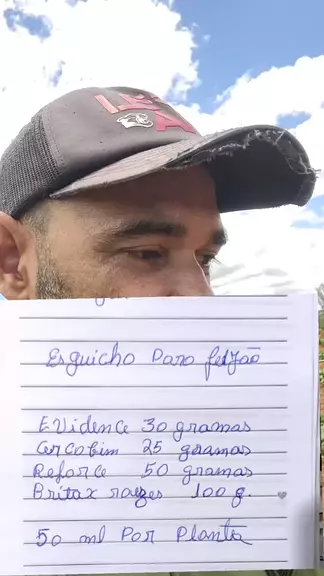 Esguicho Para feijão
Evidence 30 gramas
Cercobim 25 gramas
Reforce 50 gramas
Britax raizes 100 g.
50 ml Por Planta